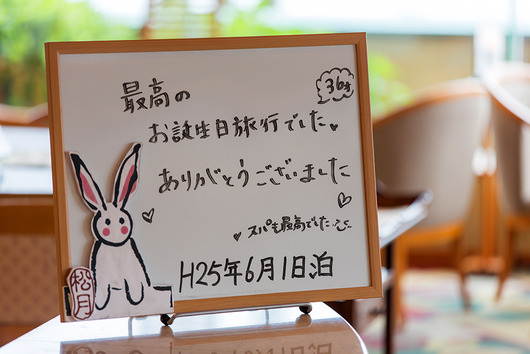 36才
最高の
お誕生日旅行でした
ありがとうございました
スパも最高でした
H25年6月1日泊
松月